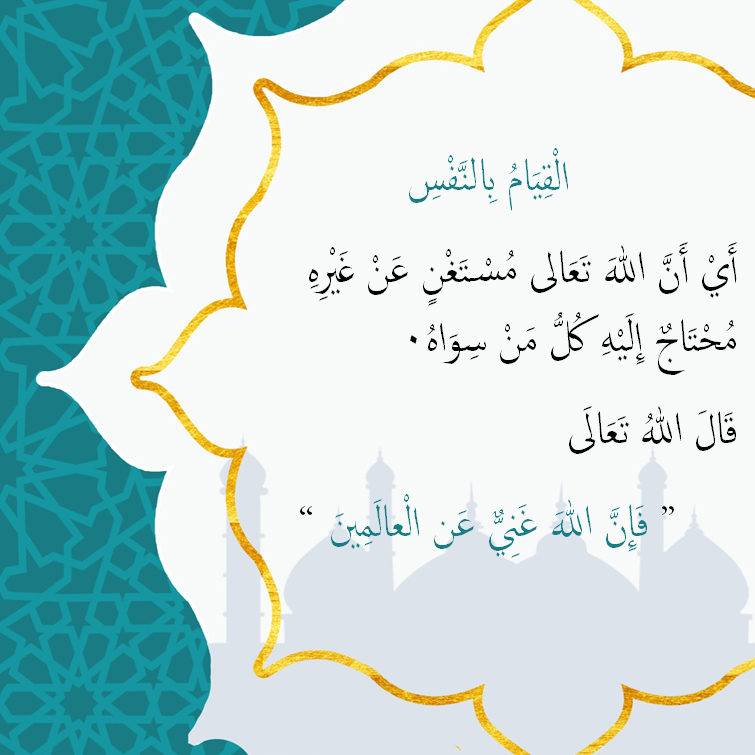 الْقِيَامُ بِالنَّفْسِ
أَيْ أَنَّ اللهَ تَعَالى مُسْتَغْنٍ عَنْ غَيْرِهِ
مُحْتَاجٌ إِلَيْهِ كُلُّ مَنْ سِوَاهُ.
قَالَ اللهُ تَعَالَى
” فَإِنَّ اللهَ غَنِيٌّ عَن الْعالَمِينَ “